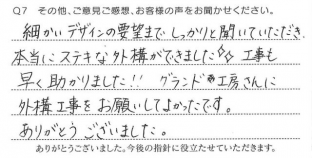 Q7 その他、ご意見ご感想、お客様の声をお聞かせください。
細かいデザインの要望まで しっかりと聞いていただき
本当にステキな外構ができました 工事も
早く助かりました!! グランド工房さんに
外構工事をお願いしてよかったです。
ありがとうございました。
ありがとうございました。今後の指針に役立たせていただきます。